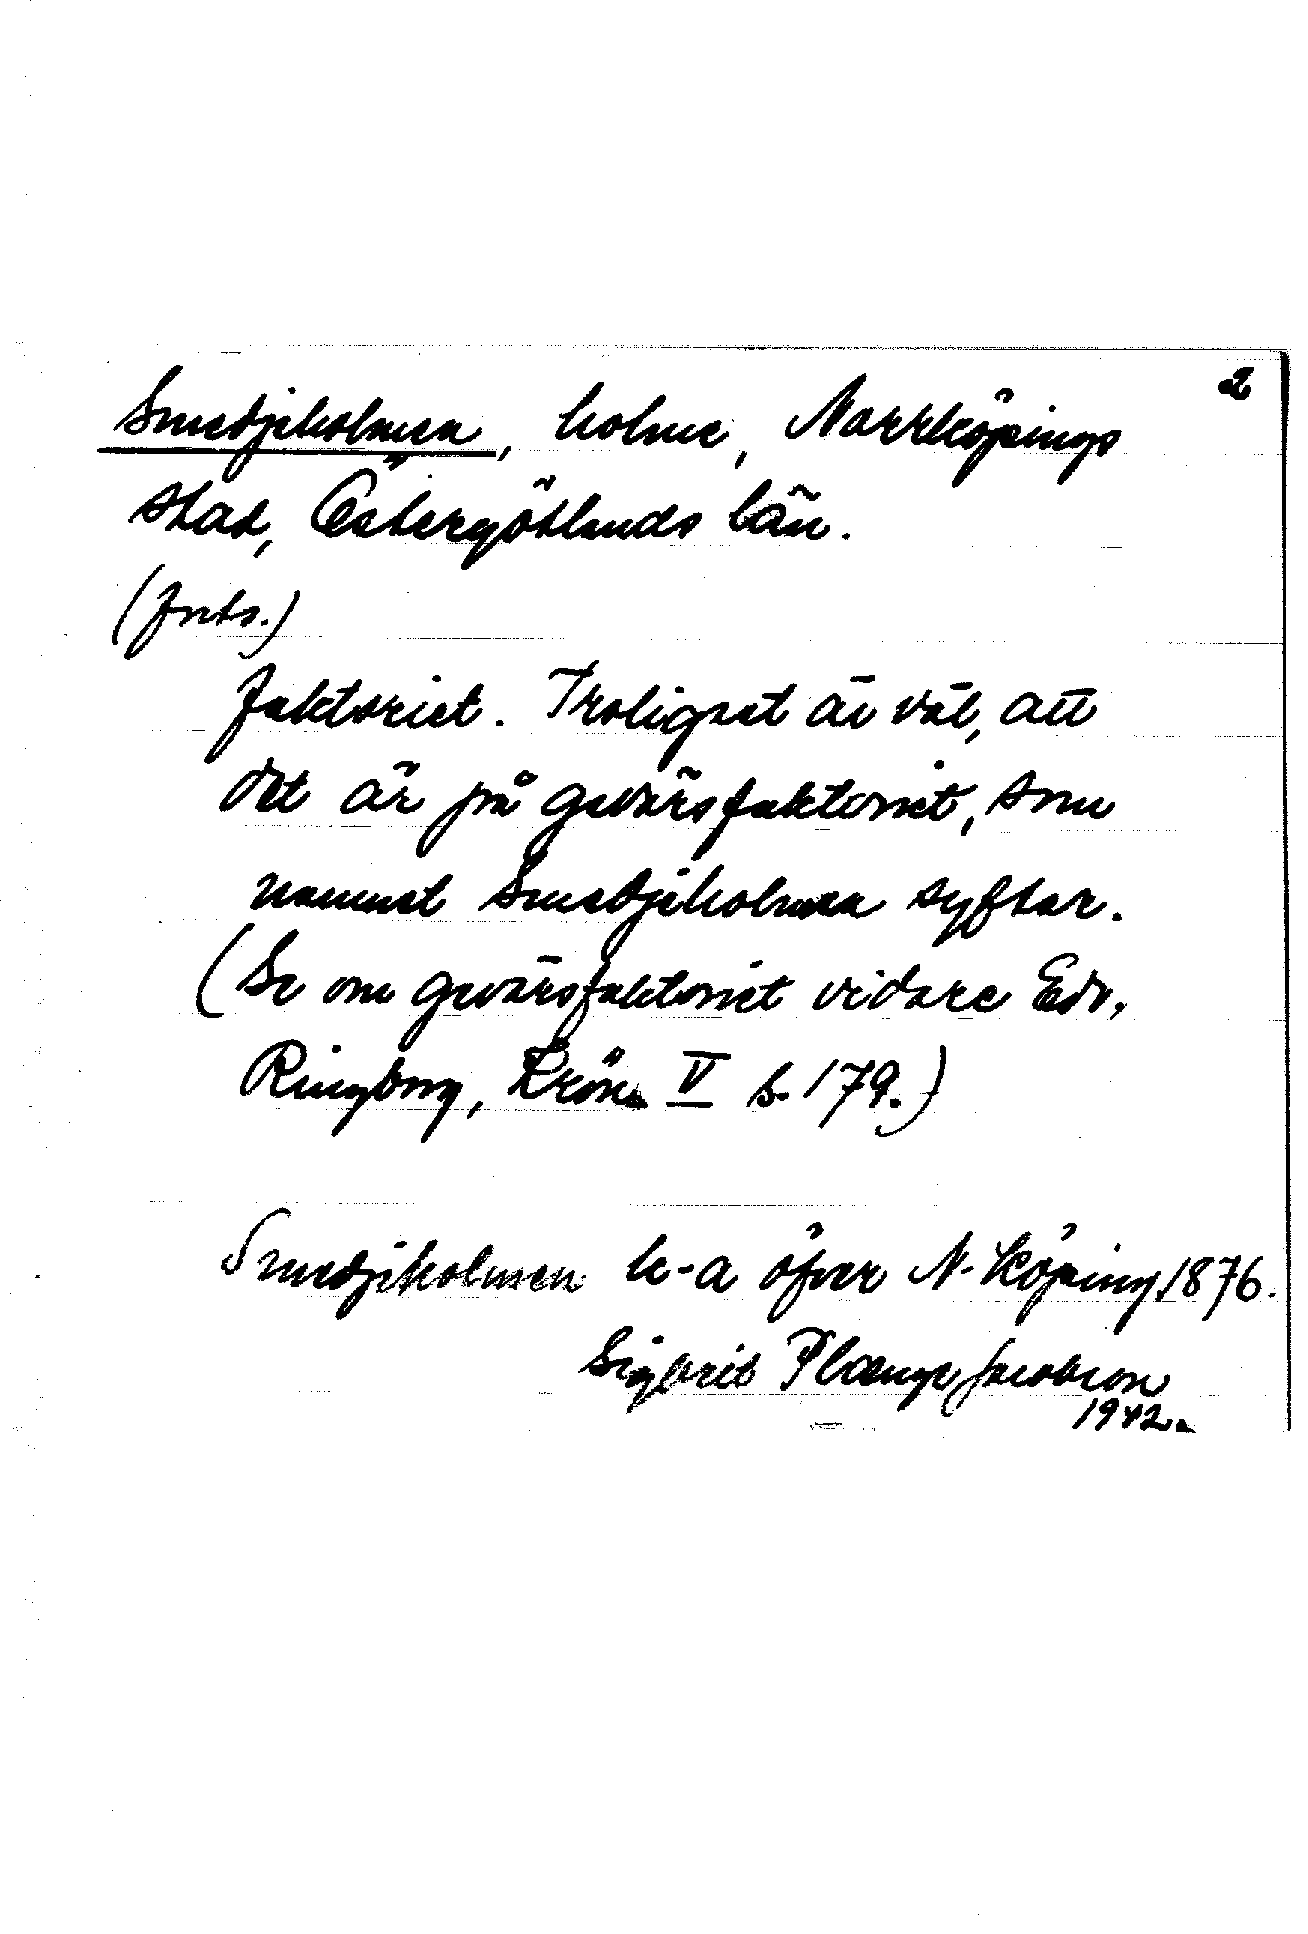 2
Smedjeholmen, holme, Norrköpings
stad, Östergötlands län.
(forts.)
faktoriet. Troligast är väl, att
det är på gevärsfaktoriet, som
namnet Smedjeholmen syftar.
(Se om gevärsfaktoriet vidare Edv.
Ringborg, Krön. V s. 179.)
Smedjeholmen k-a öfver N-köping 1876.
Sigbrit Plænge Jacobson
1942.